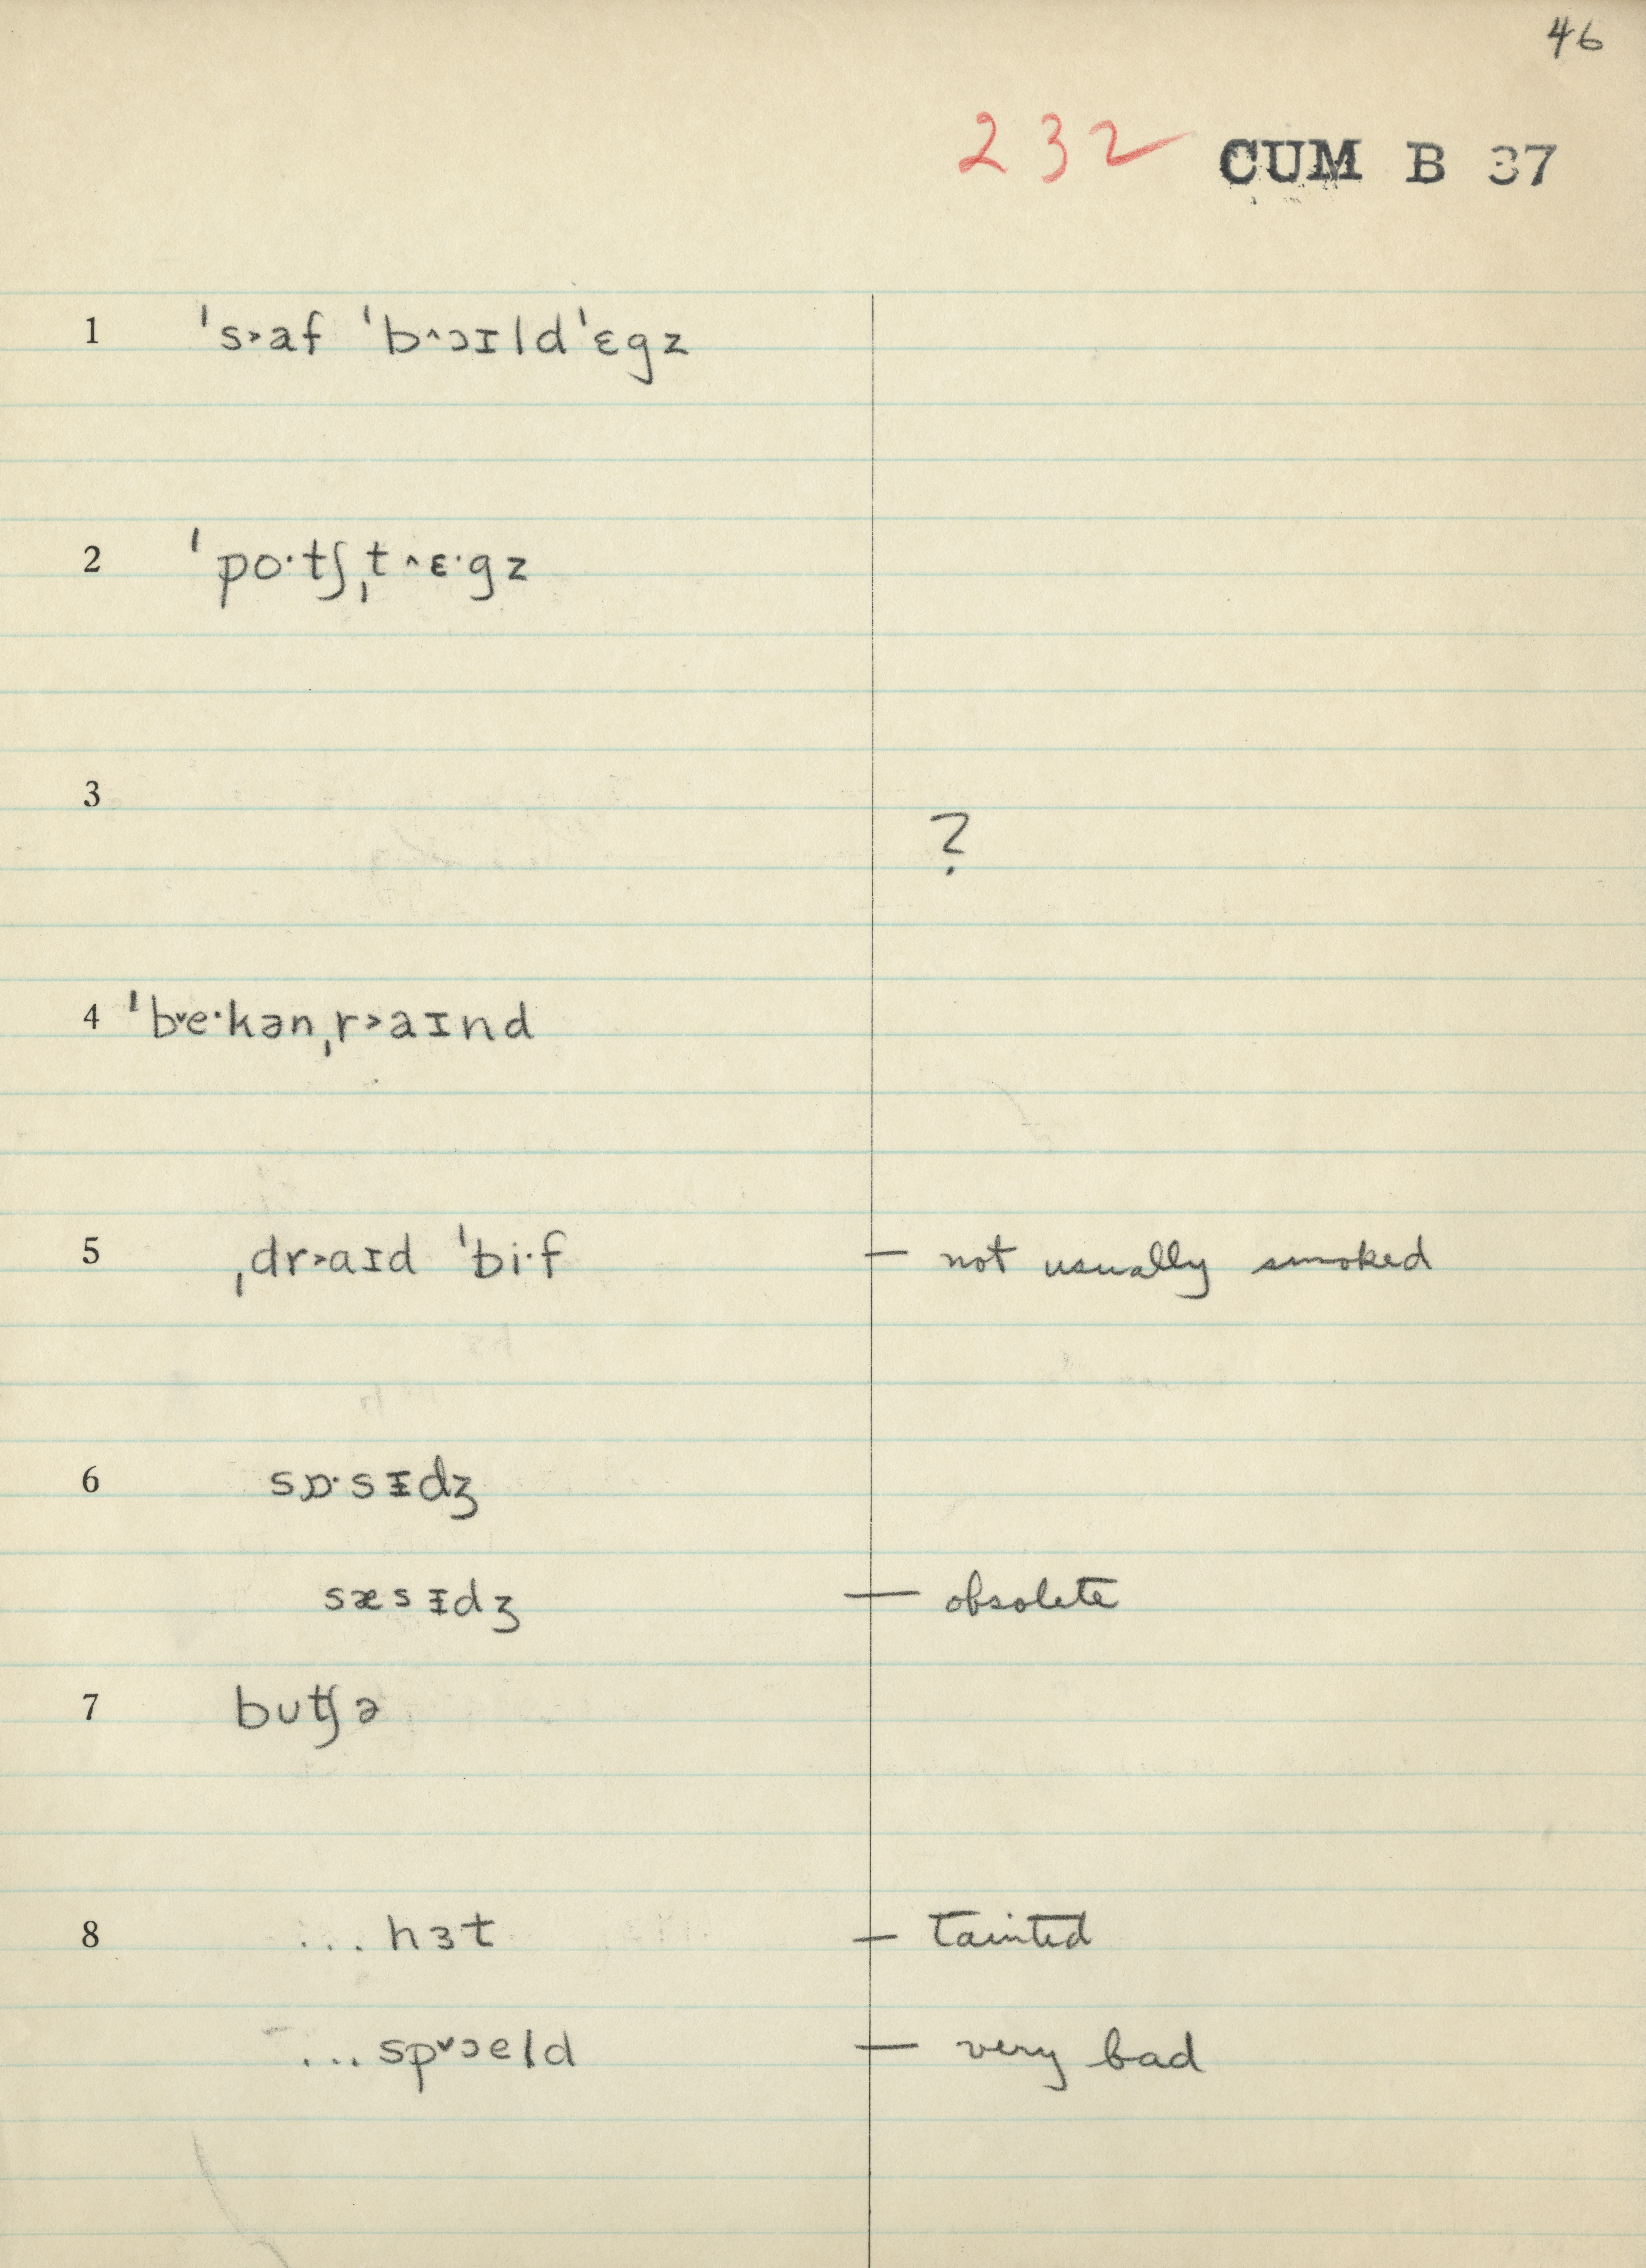 46
232 CUM B 37
1 ˈs˃af ˈb^ɔɪldˈɛgz
2 ˈpo·tʃˌt^ɛ·gz
3
?
4 ˈb˅e·kənˌr˃aɪnd
5 ˌdr˃aɪd ˈbi·f — not usually smoked
6 sɒ·sᵻdʒ
sæsᵻdʒ — obsolete
7 buʧə
8 ...hɜt — tainted
...sp˅ɔeld — very bad